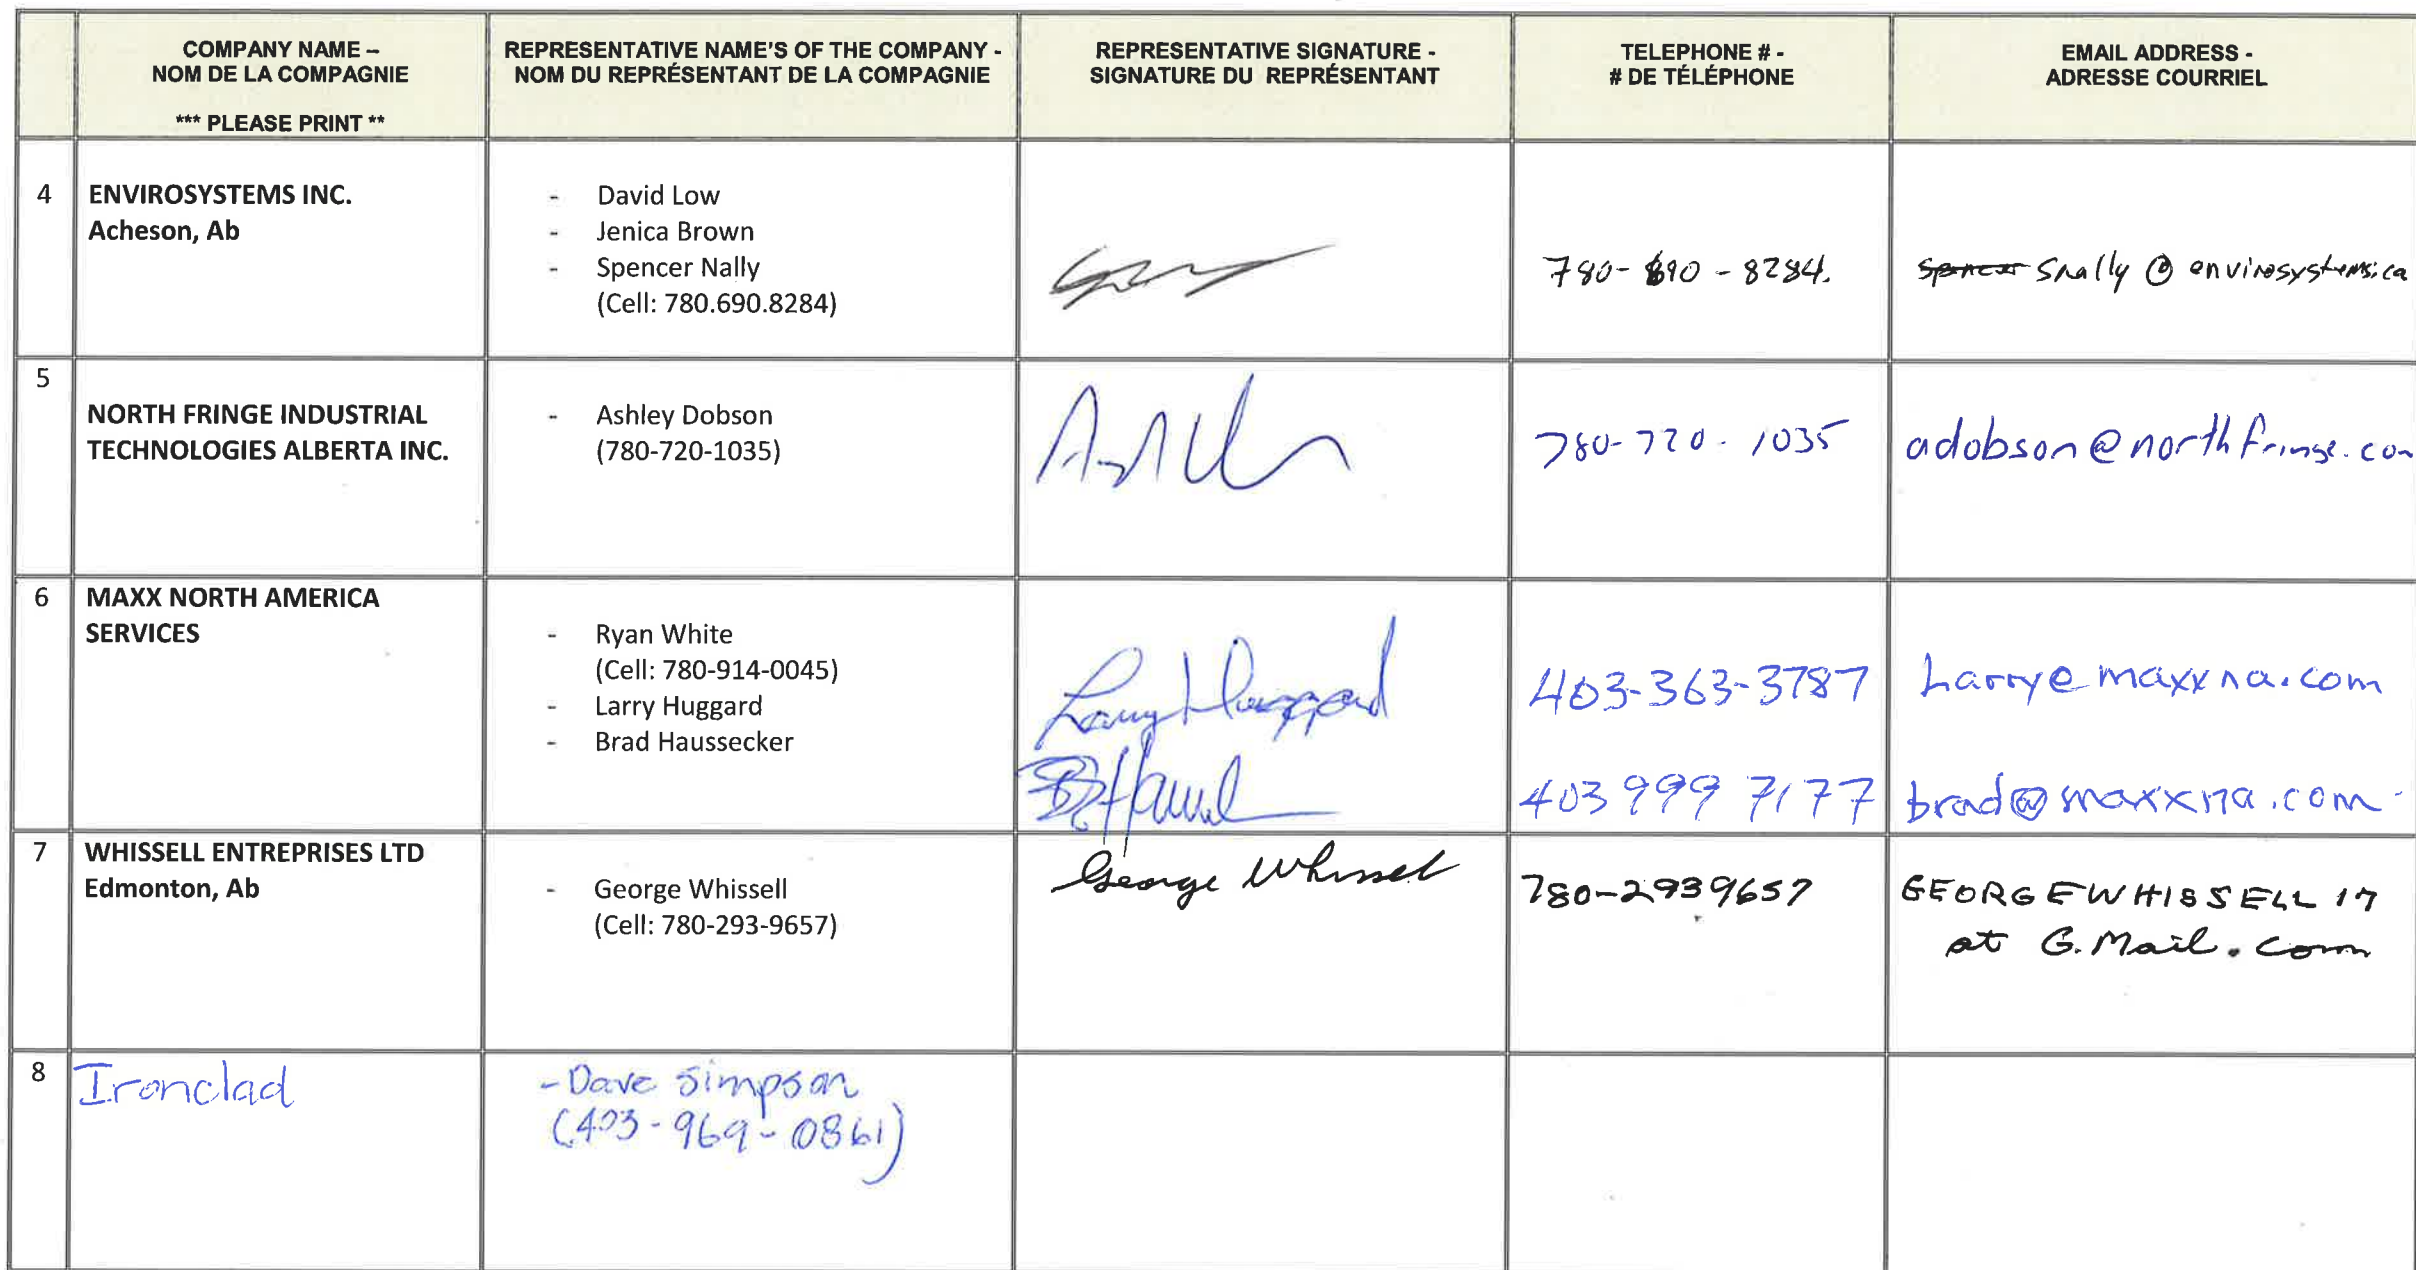 COMPANY NAME –
NOM DE LA COMPAGNIE
*** PLEASE PRINT **
REPRESENTATIVE NAME'S OF THE COMPANY -
NOM DU REPRÉSENTANT DE LA COMPAGNIE
REPRESENTATIVE SIGNATURE -
SIGNATURE DU REPRÉSENTANT
TELEPHONE # -
# DE TÉLÉPHONE
EMAIL ADDRESS -
ADRESSE COURRIEL
4
ENVIROSYSTEMS INC.
Acheson, Ab
- David Low
- Jenica Brown
- Spencer Nally
(Cell: 780.690.8284)
780-690-8284.
snally@envirosystems.ca
5
NORTH FRINGE INDUSTRIAL
TECHNOLOGIES ALBERTA INC.
- Ashley Dobson
(780-720-1035)
780-720-1035
adobson@northfringe.com
6
MAXX NORTH AMERICA
SERVICES
- Ryan White
(Cell: 780-914-0045)
- Larry Huggard
- Brad Haussecker
Larry Huggard
403-363-3787
Larry@maxxna.com
403 999 7177
brad@maxxna.com
7
WHISSELL ENTREPRISES LTD
Edmonton, Ab
- George Whissell
(Cell: 780-293-9657)
George Whissel
780-2939657
GEORGEWHISSELL17
at G.Mail.com
8
Ironclad
- Dave Simpson
(403-969-0861)